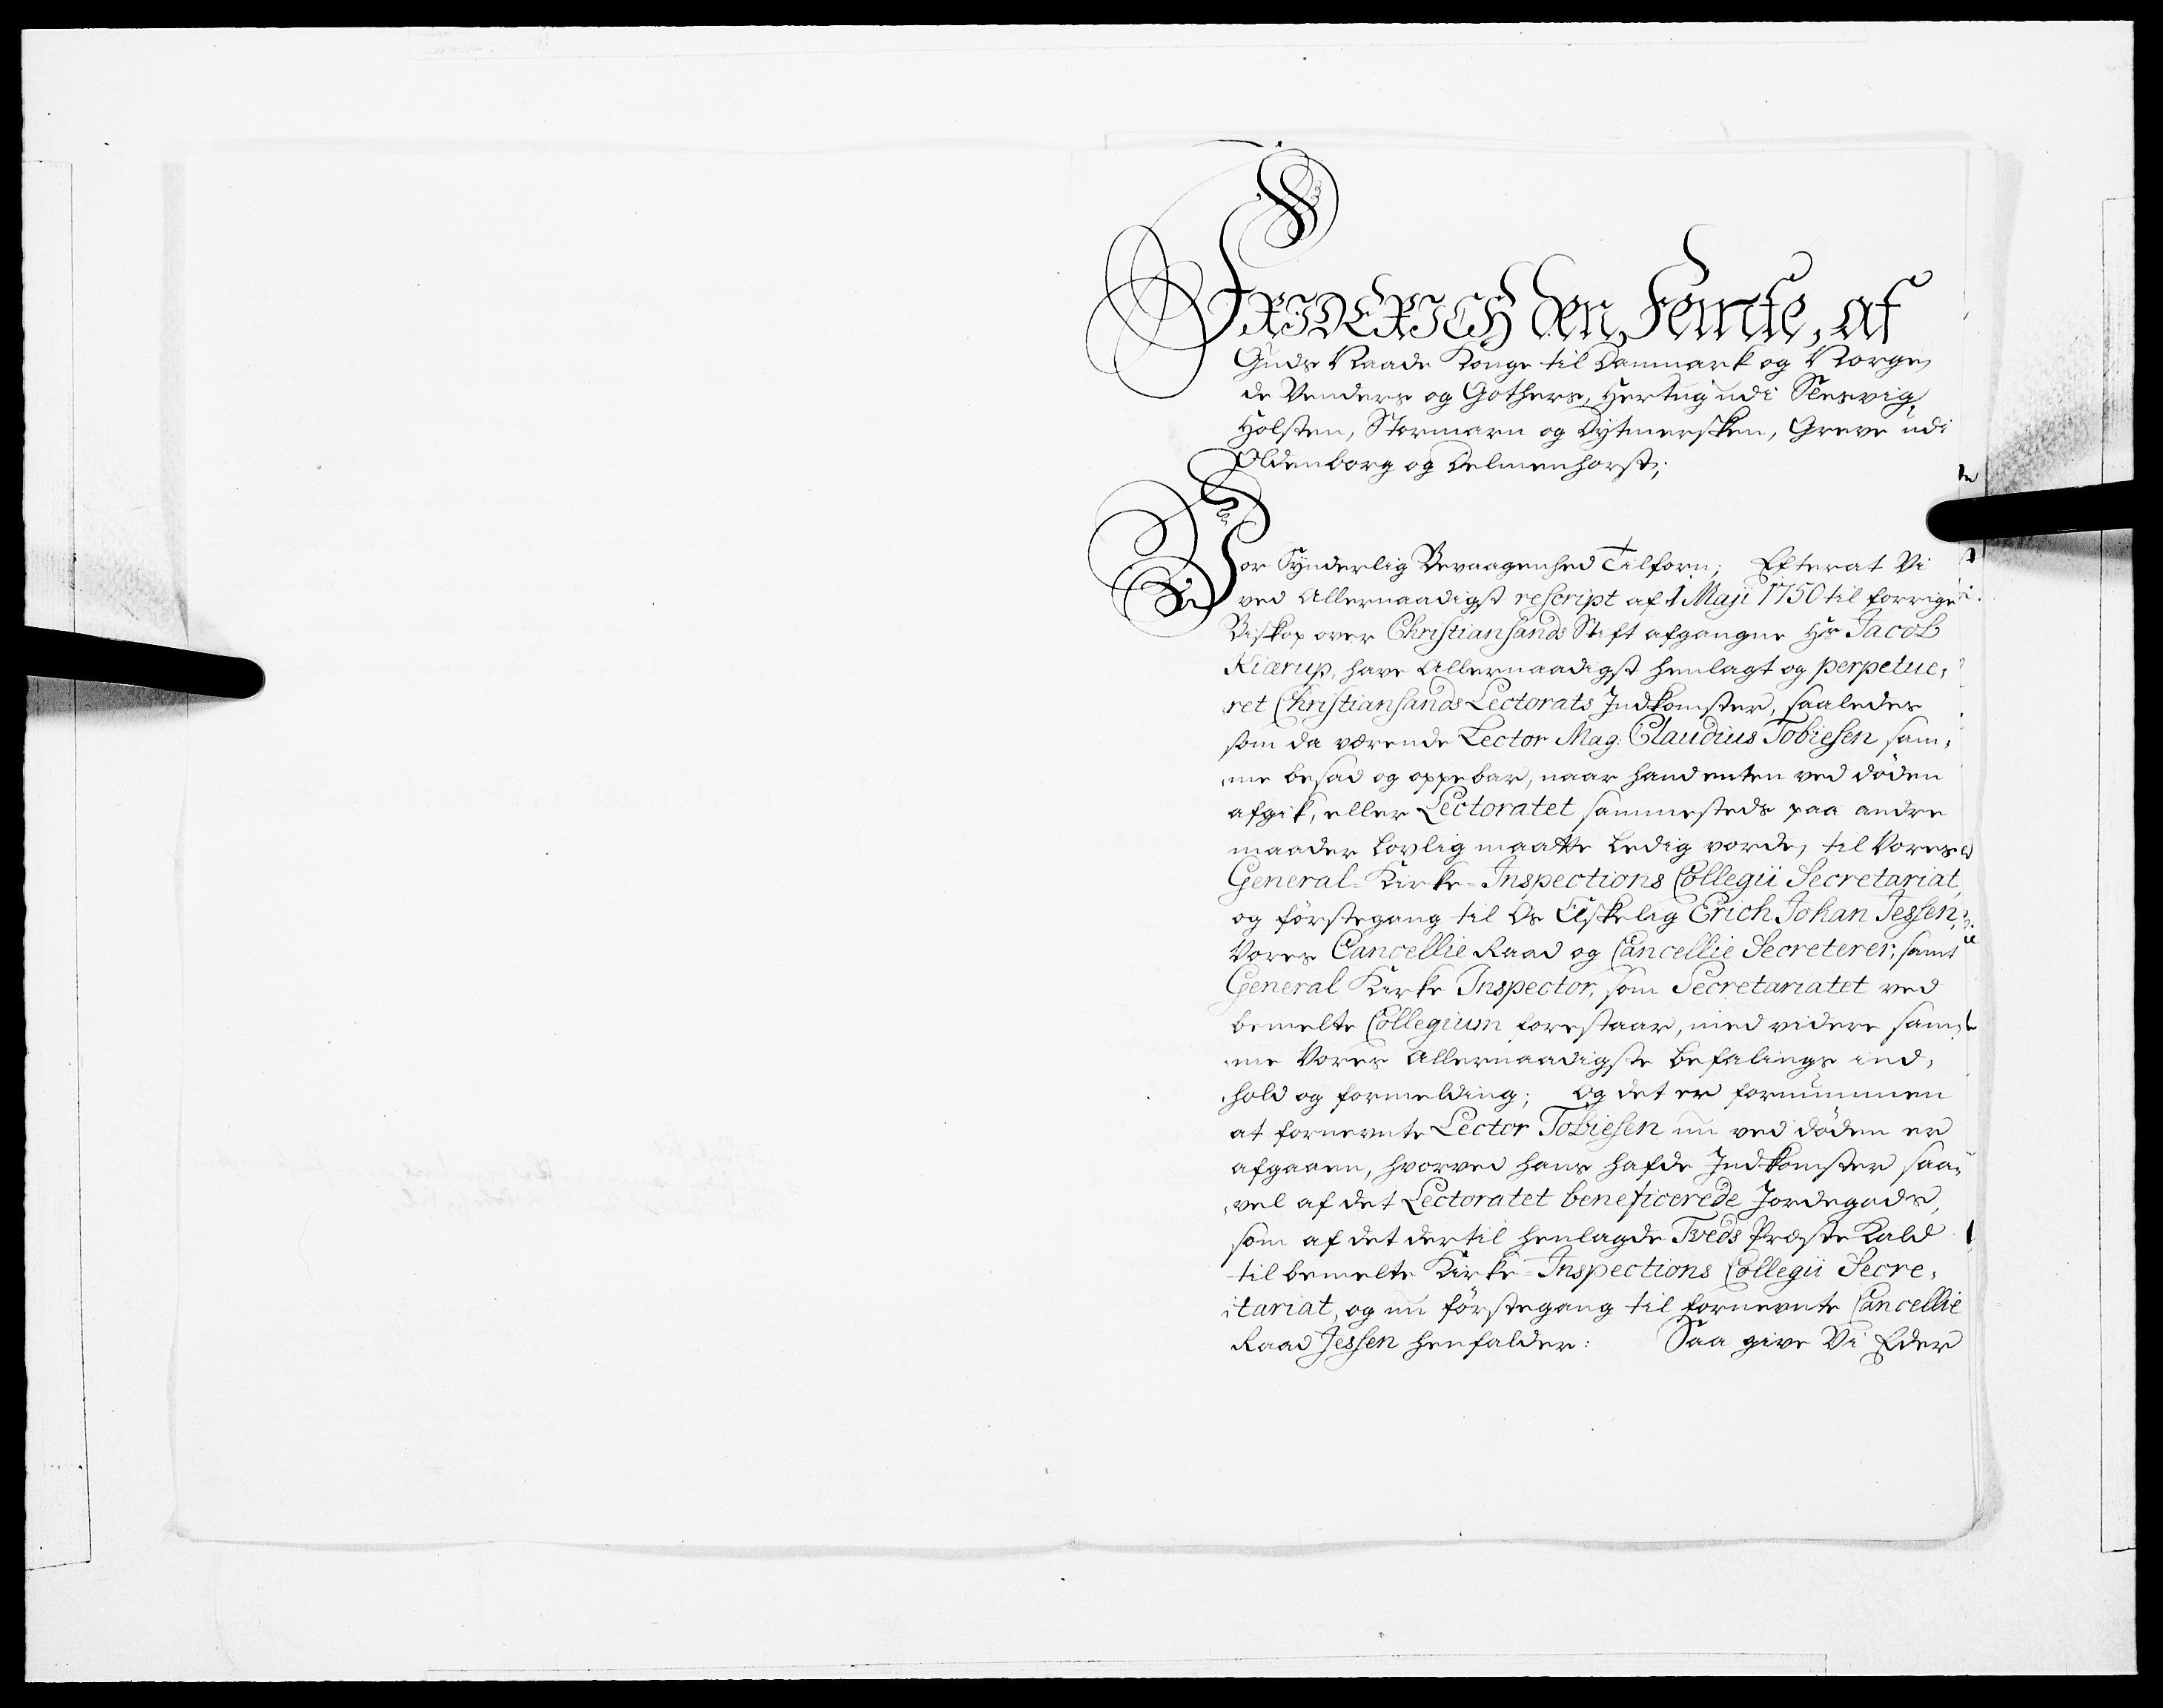 FRIDERICH den Femte, af
Guds Naade Konge til Danmark og Norge,
de Venders og Gothers, Hertug udi Slesvig,
Holsten, Stormarn og Dytmersken, Greve udi
Oldenborg og Delmenhorst;
Vor Synderlig Bevaagenhed Tilforn; Efterat Vi
ved Allernaadigst rescript af 1 Maji 1750 til forrige
Biskop over Christiansands Stift afgangne Hr Jacob
Kiærup, have Allernaadigst henlagt og perpetue,
ret Christiansands Lectorats Indkomster, saaledes
som da værende Lector Mag: Claudius Tobiesen sam,
me besad og oppebar, naar hand enten ved døden
afgik, eller Lectoratet sammesteds paa andre
maader Lovlig maatte Ledig vorde, til Vores
General-Kirke-Inspections Collegii Secretariat,
og førstegang til Os Elskelig Erich Johan Jessen,
Vores Cancellie Raad og Cancellie Secreterer, samt
General Kirke Inspector, som Secretariatet ved
bemelte Collegium forestaar, med videre sam,
me Vores Allernaadigste Befalings ind,
hold og formelding; Og det er fornummen
at fornevnte Lector Tobiesen nu ved døden er
afgaaen, hvorved hans hafde Indkomster saa,
vel af det Lectoratet beneficerede Jordegods,
som af det dertil henlagde Tveds Præste Kald
til bemelte Kirke-Inspections Collegii Secre,
tariat, og nu førstegang til fornevnte Cancellie
Raad Jessen henfalder: Saa give Vi Eder